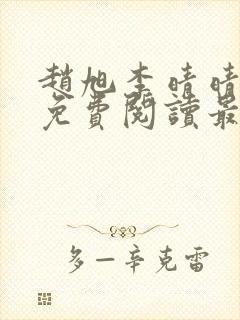 趙旭李晴晴
免費閱讀最
多一辛克雷